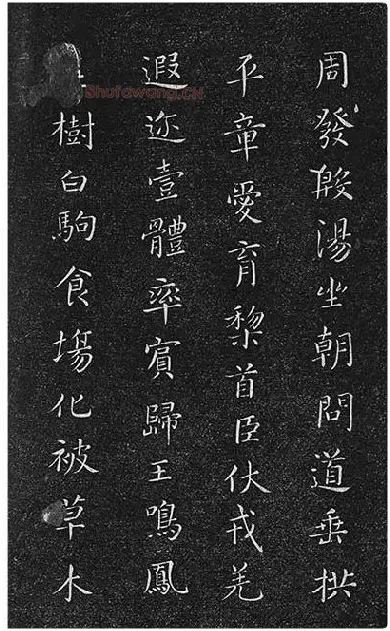 周發殷湯坐朝問道垂拱
平章愛育黎首臣伏戎羌
遐迩壹體率賓歸王鳴鳳
樹白駒食場化被草木
Shufawang.CN